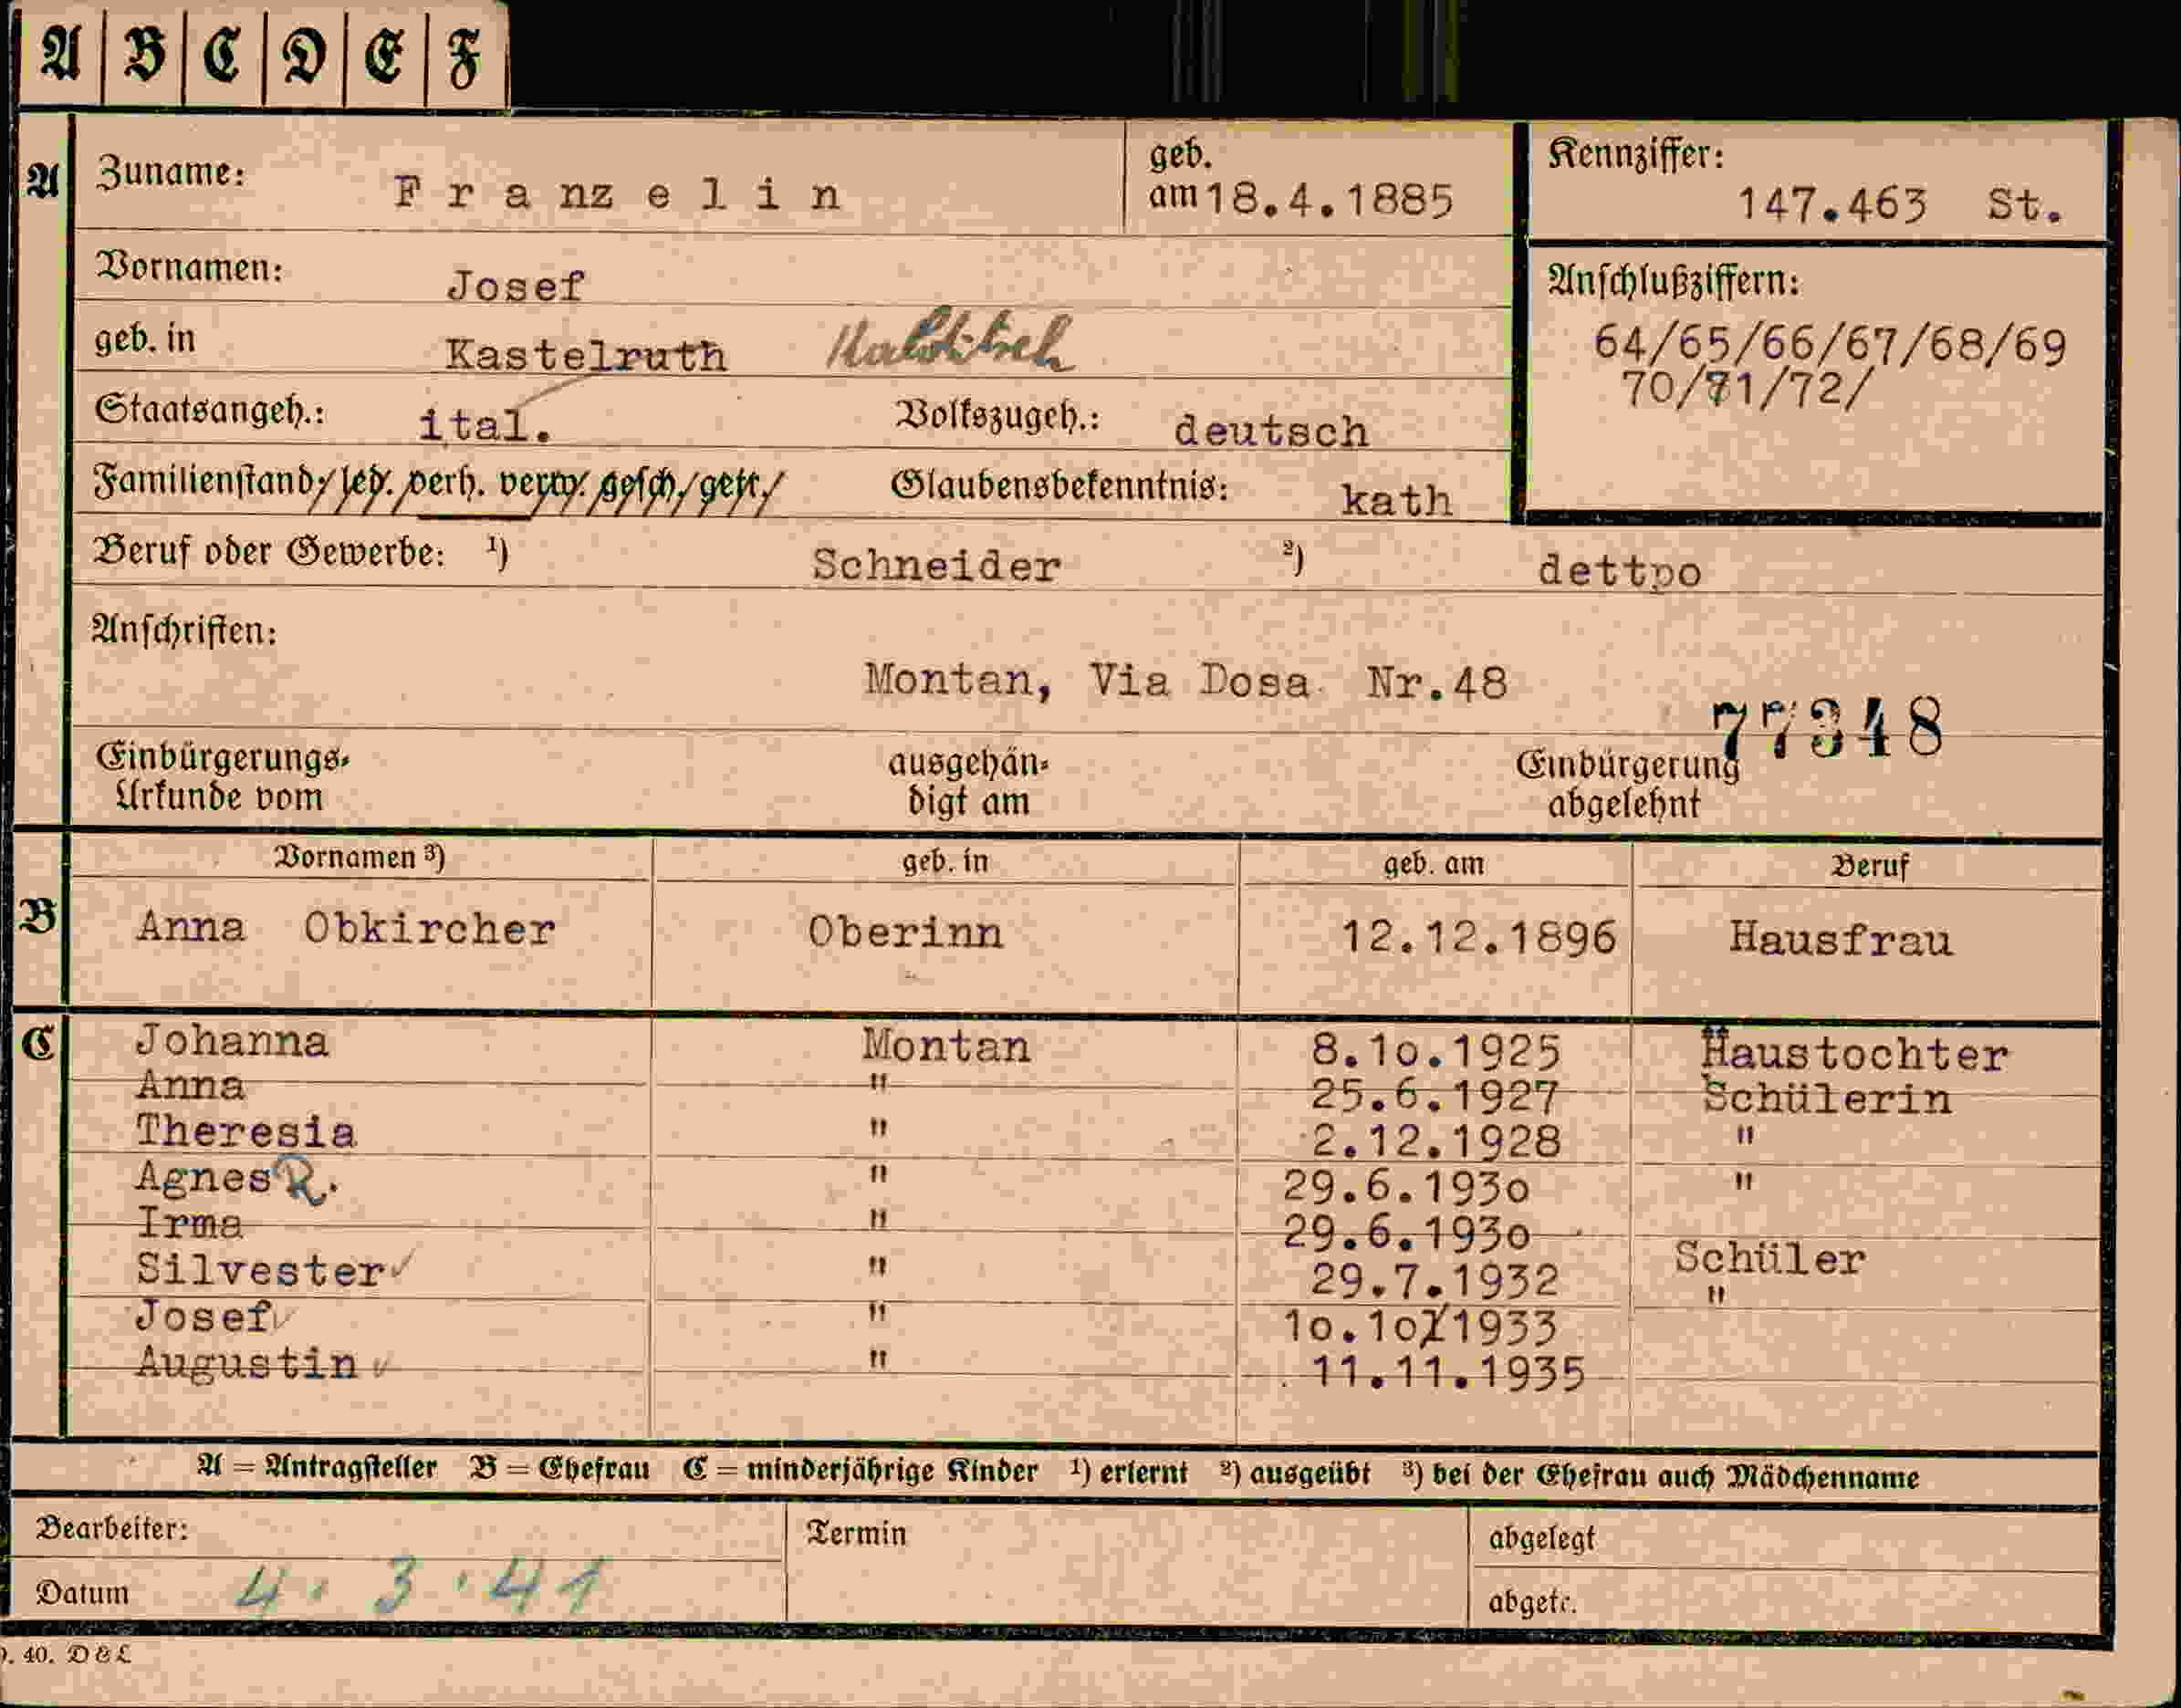 A B C D E F
A Zuname: Franzelin geb. am 18.4.1885 Kennziffer: 147.463 St.
Vornamen: Josef
Anschlußziffern:
64/65/66/67/68/69
70/71/72/
geb. in Kastelruth
Staatsangeh.: ital. Volkszugeh.: deutsch
Familienstand: led. verh. verw. gesch. getr. Glaubensbekenntnis: kath
Beruf oder Gewerbe: ¹) Schneider ²) dettpo
Anschriften:
Montan, Via Dosa Nr.48
77348
Einbürgerungs-Urkunde vom ausgehändigt am Einbürgerung abgelehnt
Vornamen ³) geb. in geb. am Beruf
B Anna Obkircher Oberinn 12.12.1896 Hausfrau
C Johanna Montan 8.10.1925 Haustochter
Anna " 25.6.1927 Schülerin
Theresia " 2.12.1928 "
Agnes R. " 29.6.1930 "
Irma " 29.6.1930
Silvester " 29.7.1932 Schüler
Josef " 10.10.1933 "
Augustin " 11.11.1935
A = Antragsteller B = Ehefrau C = minderjährige Kinder ¹) erlernt ²) ausgeübt ³) bei der Ehefrau auch Mädchenname
Bearbeiter: Termin abgelegt
Datum 4.3.41 abgetr.
40. D & L